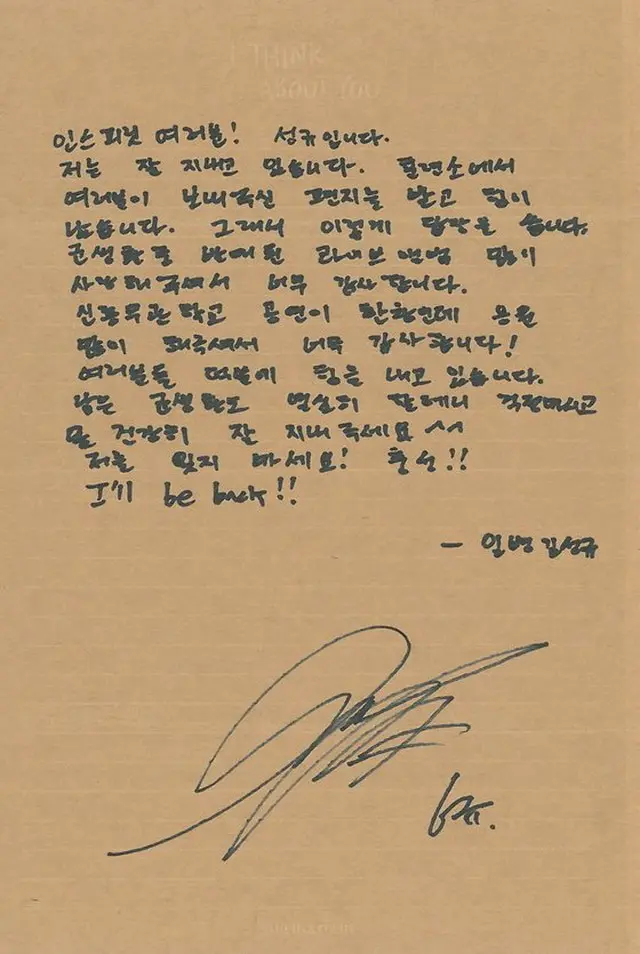 THINK
ABOUT YOU
인스피릿 여러분! 성규입니다.
저는 잘 지내고 있습니다. 훈련소에서
여러분이 보내주신 편지는 받고 힘이
났습니다. 그래서 이렇게 답장을 씁니다.
군생활중 발매된 라이브앨범 많이
사랑해주셔서 너무 감사합니다.
신흥무관학교 공연이 한창인데 응원
많이 해주셔서 너무 감사합니다!
여러분들 덕분에 힘을 내고 있습니다.
남은 군생활도 열심히 할테니 걱정마시고
몸 건강히 잘 지내주세요 ^^
저를 잊지 마세요! 충성!!
I'll be back!!
- 일병 김성규